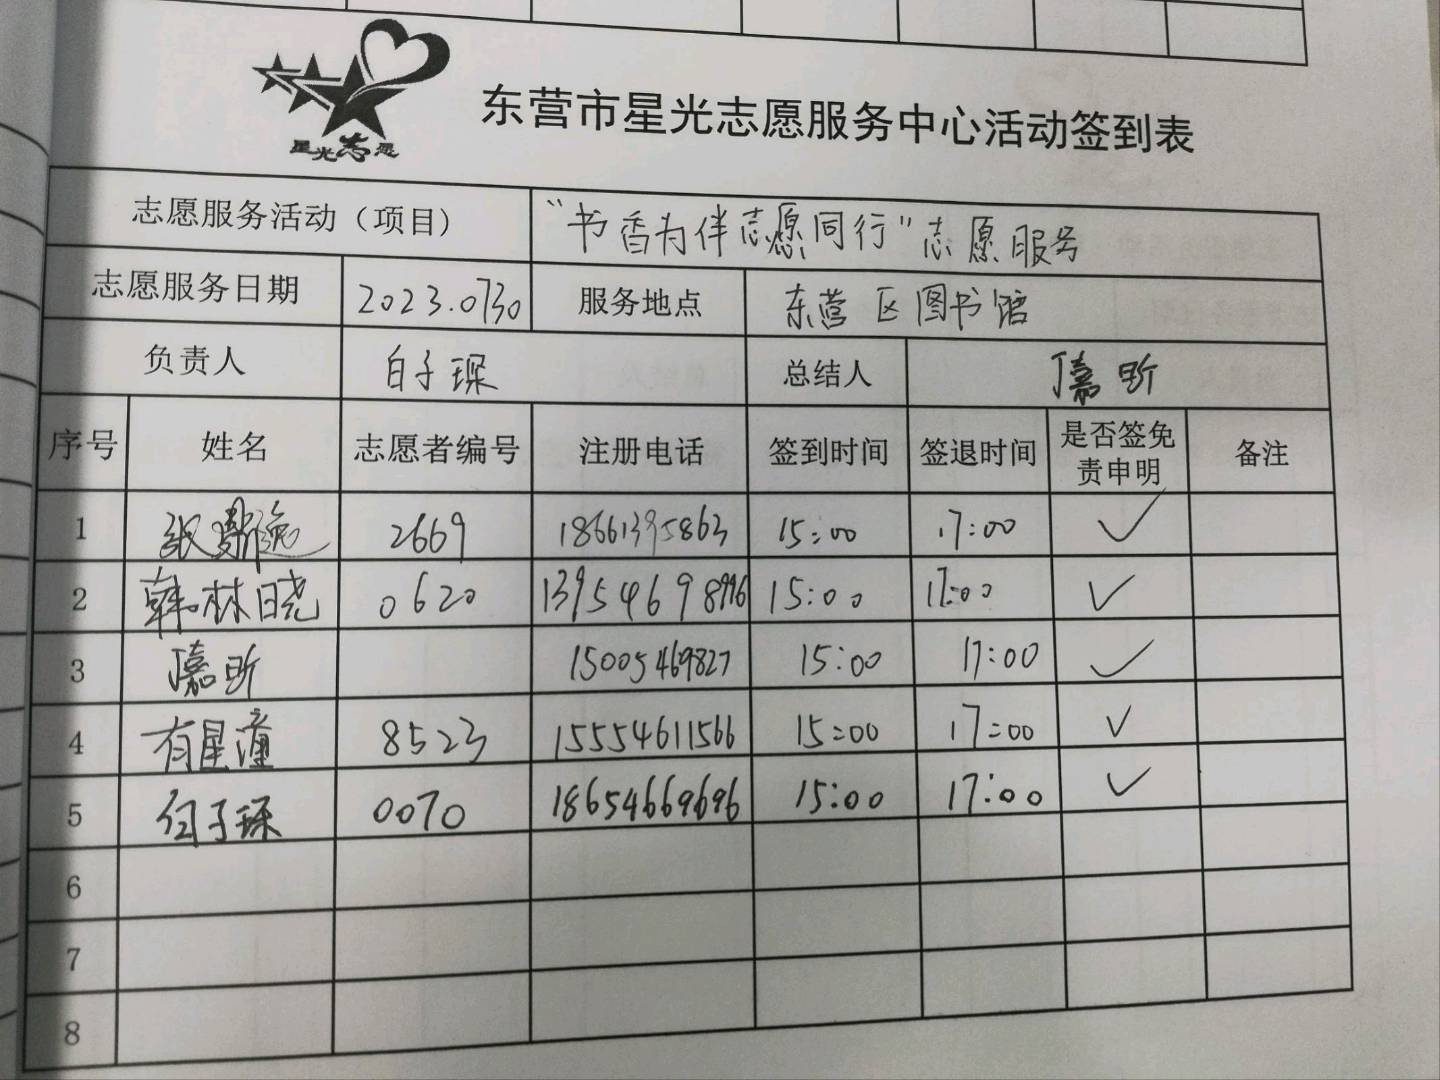 星光志愿
东营市星光志愿服务中心活动签到表
志愿服务活动（项目） “书香为伴志愿同行”志愿服务
志愿服务日期 2023.0730 服务地点 东营区图书馆
负责人 白子琛 总结人
序号 姓名 志愿者编号 注册电话 签到时间 签退时间 是否签免责申明 备注
1 2669 18661395863 15:00 17:00 ✓
2 韩林晓 0620 15:00 17:00 ✓
3 15005469827 15:00 17:00 ✓
4 有星潼 8523 15554611566 15:00 17:00 ✓
5 白子琛 0070 18654669696 15:00 17:00 ✓
6
7
8